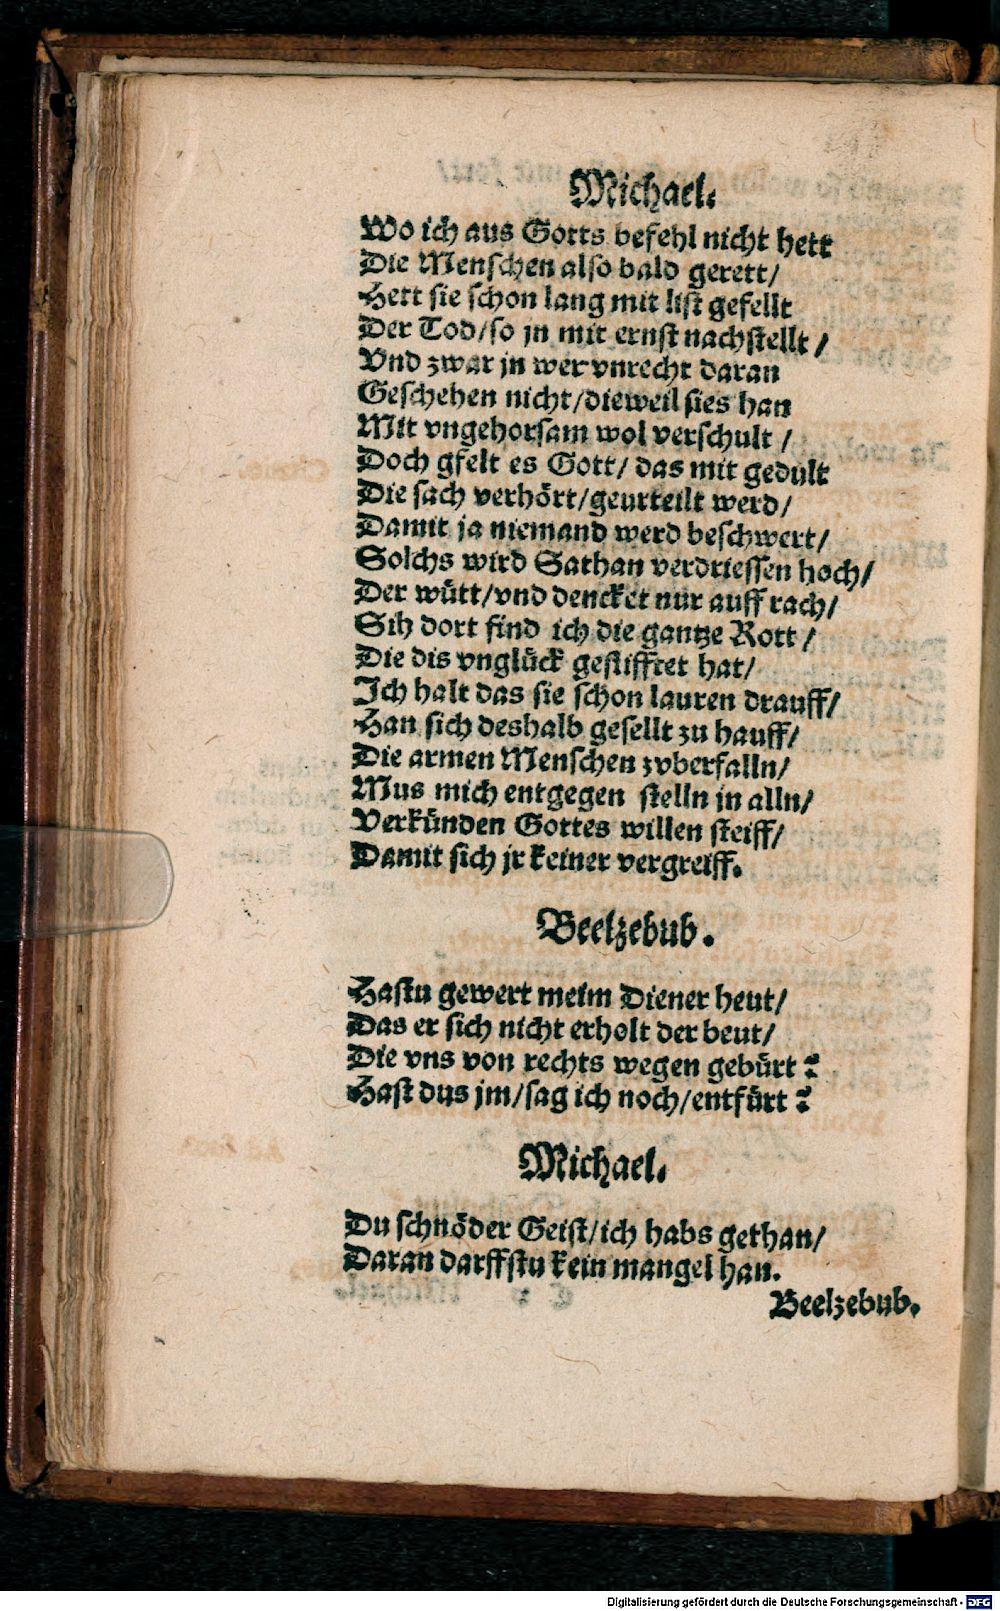 Michael.
Wo ich aus Gotts befehl nicht hett
Die Menschen also bald gerett/
Hett sie schon lang mit list gefellt
Der Tod/so jn mit ernst nachstellt/
Vnd zwar jn wer vnrecht daran
Geschehen nicht/dieweil sies han
Mit vngehorsam wol verschult/
Doch gfelt es Gott/ das mit gedult
Die sach verhört/geurteilt werd/
Damit ja niemand werd beschwert/
Solchs wird Sathan verdriessen hoch/
Der wütt/vnd dencket nur auff rach/
Sih dort find ich die gantze Rott/
Die dis vnglück gestifftet hat/
Ich halt das sie schon lauren drauff/
Han sich deshalb gesellt zu hauff/
Die armen Menschen zvberfalln/
Mus mich entgegen stelln jn alln/
Verkünden Gottes willen steiff/
Damit sich jr keiner vergreiff.
Beelzebub.
Hastu gewert meim Diener heut/
Das er sich nicht erholt der beut/
Die vns von rechts wegen gebürt?
Hast dus jm/sag ich noch/entfürt?
Michael.
Du schnöder Geist/ich habs gethan/
Daran darffstu kein mangel han.
Beelzebub.
Digitalisierung gefördert durch die Deutsche Forschungsgemeinschaft - DFG